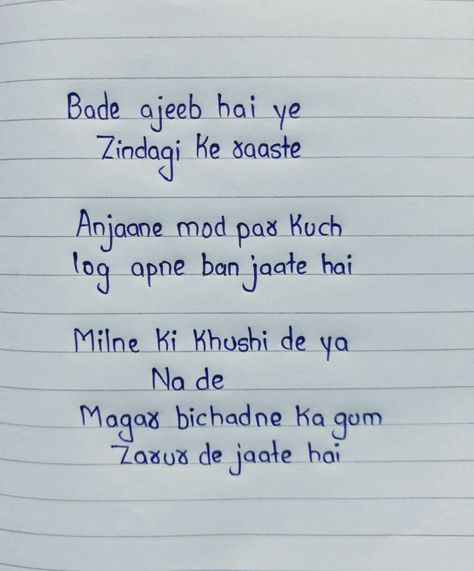 Bade ajeeb hai ye
Zindagi ke raaste
Anjaane mod par kuch
log apne ban jaate hai
Milne ki khushi de ya
Na de
Magar bichadne ka gum
Zarur de jaate hai